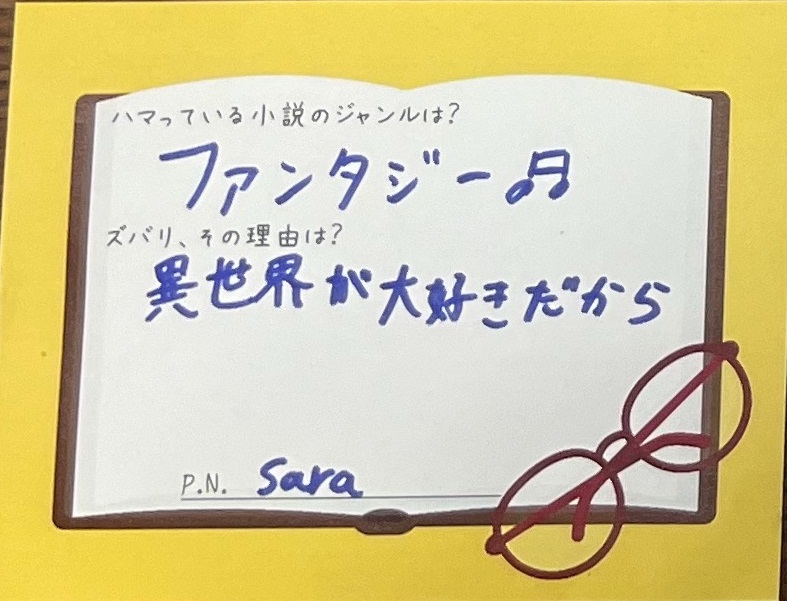 ハマっている小説のジャンルは?
ファンタジー♫
ズバリ、その理由は?
異世界が大好きだから
P.N. Sara